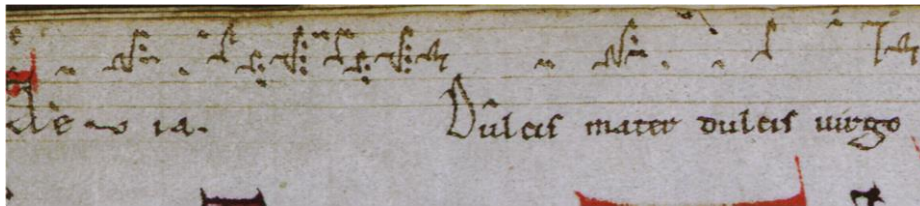 Dulcis mater dulcis uirgo